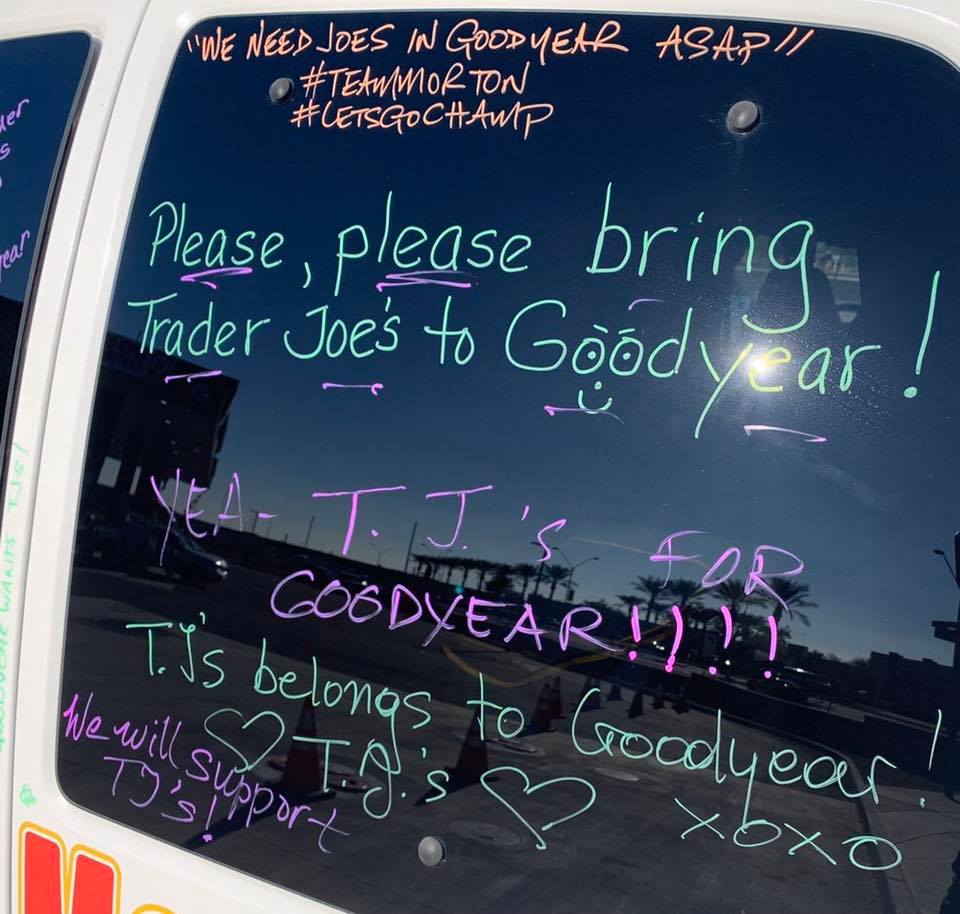 "WE NEED JOES IN GOODYEAR ASAP"
#TEAMMORTON
#LETSGOCHAMP
Please, please bring
Trader Joe's to Goodyear!
YEA- T. J.'s FOR
GOODYEAR!!!!
T.J's belongs to Goodyear!
We will support
TJ's!
T.J.'s
xoxo
WANTS TJS!
ear